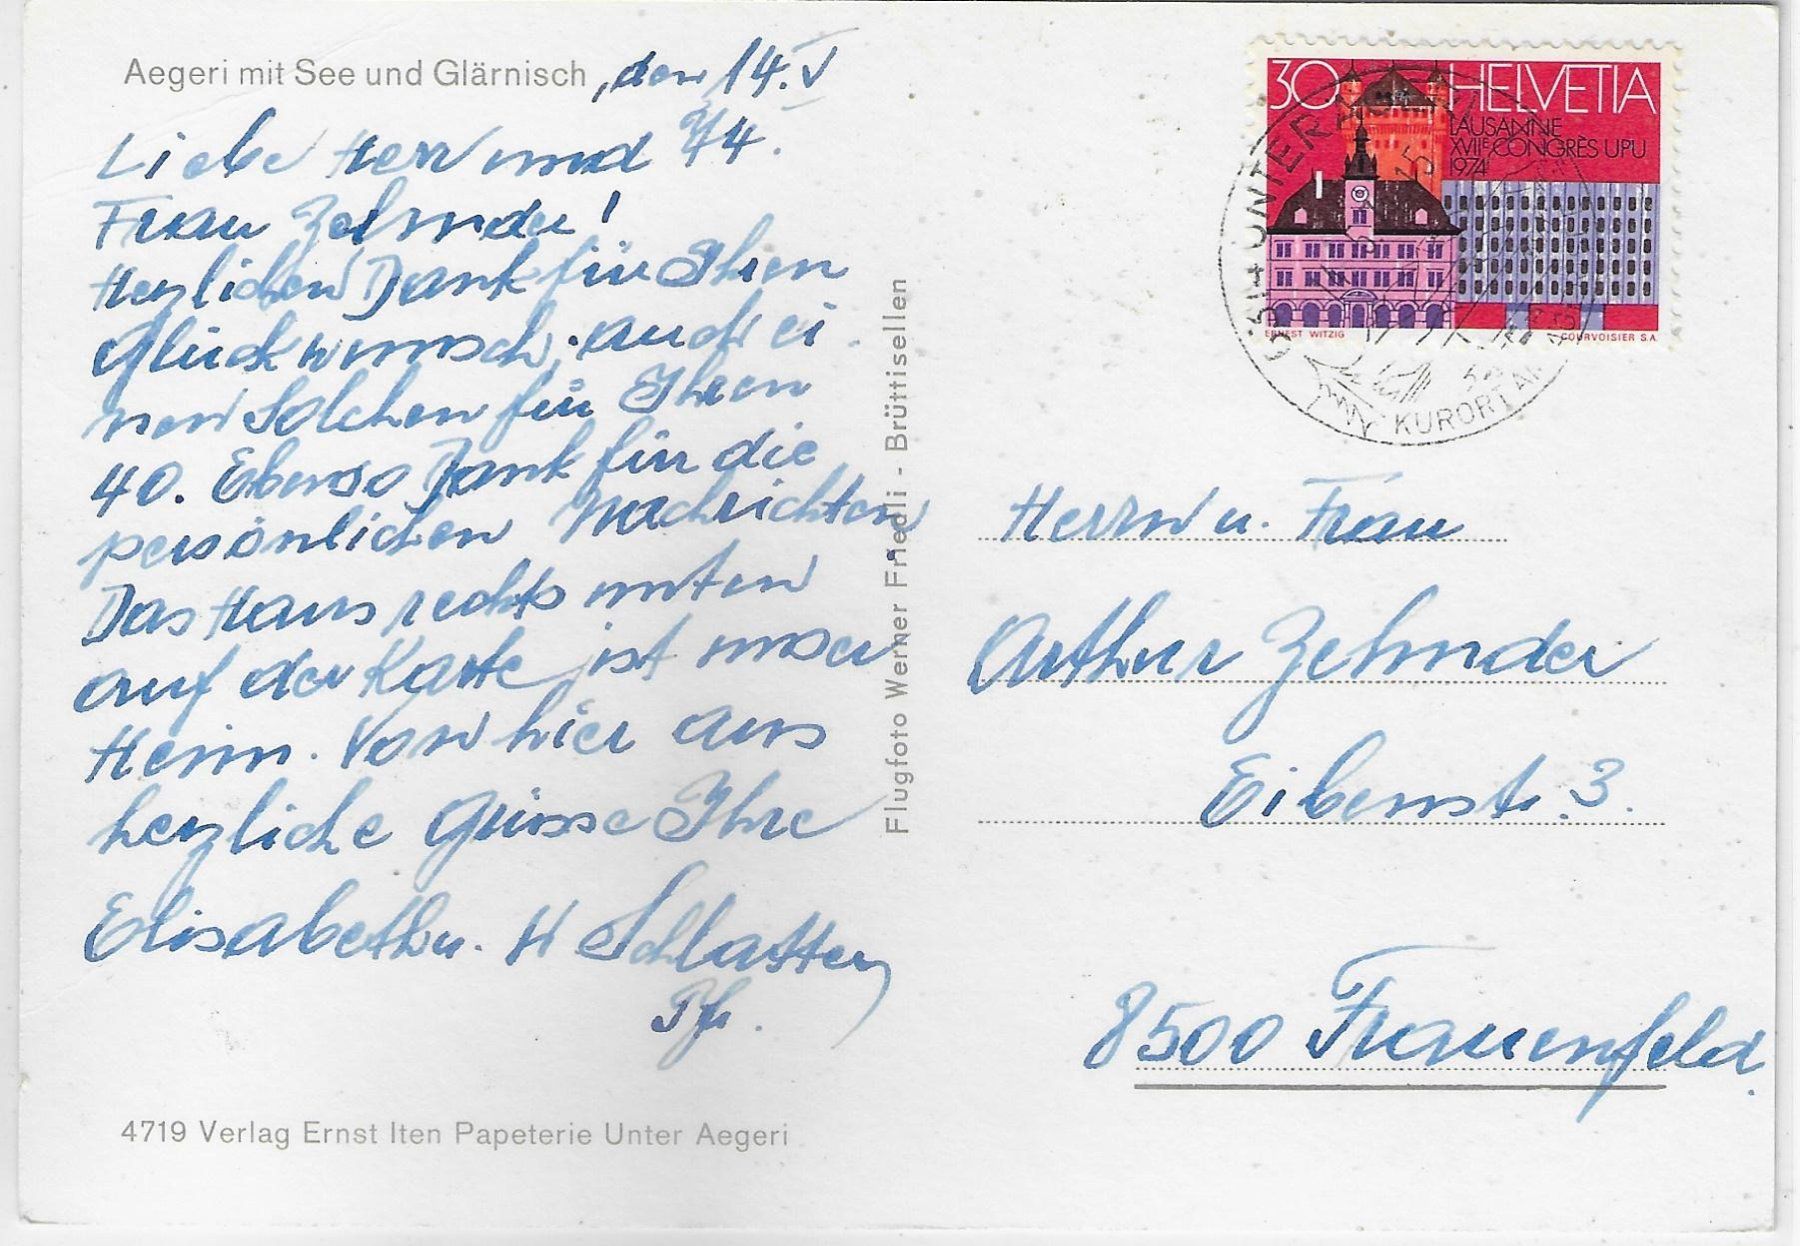 Aegeri mit See und Glärnisch, den 14. V
74.
Liebe Herr und
Frau Zehnder!
Herzlichen Dank für Ihren
Glückwunsch, auch ei
nen Solchen für Ihren
40. Ebenso Dank für die
persönlichen Nachrichten
Das Haus rechts unten
auf der Karte ist unser
Heim. Von hier aus
herzliche Grüsse Ihre
Elisabeth u. H Schlatter
Pfr.
4719 Verlag Ernst Iten Papeterie Unter Aegeri
Flugfoto Werner Friedli - Brüttisellen
30 HELVETIA
LAUSANNE
XVIIE CONGRÈS UPU
1974
ERNEST WITZIG COURVOISIER S.A.
6314 UNTERÄ
15
KURORT AM
Herrn u. Frau
Arthur Zehnder
Eibenstr. 3.
8500 Frauenfeld.